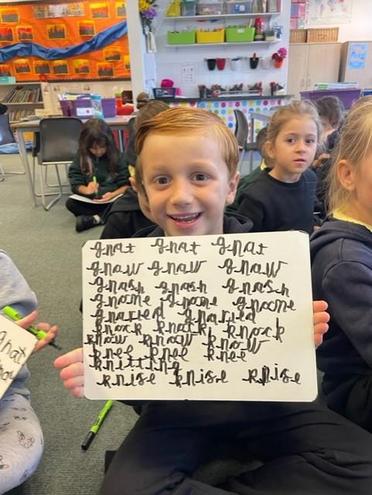 gnat gnat gnat
gnaw gnaw gnaw
gnash gnash gnash
gnome gnome gnome
gnarled gnarled
knock knock
know know know
knee knee knee
knitting
knise knise knise
gnat